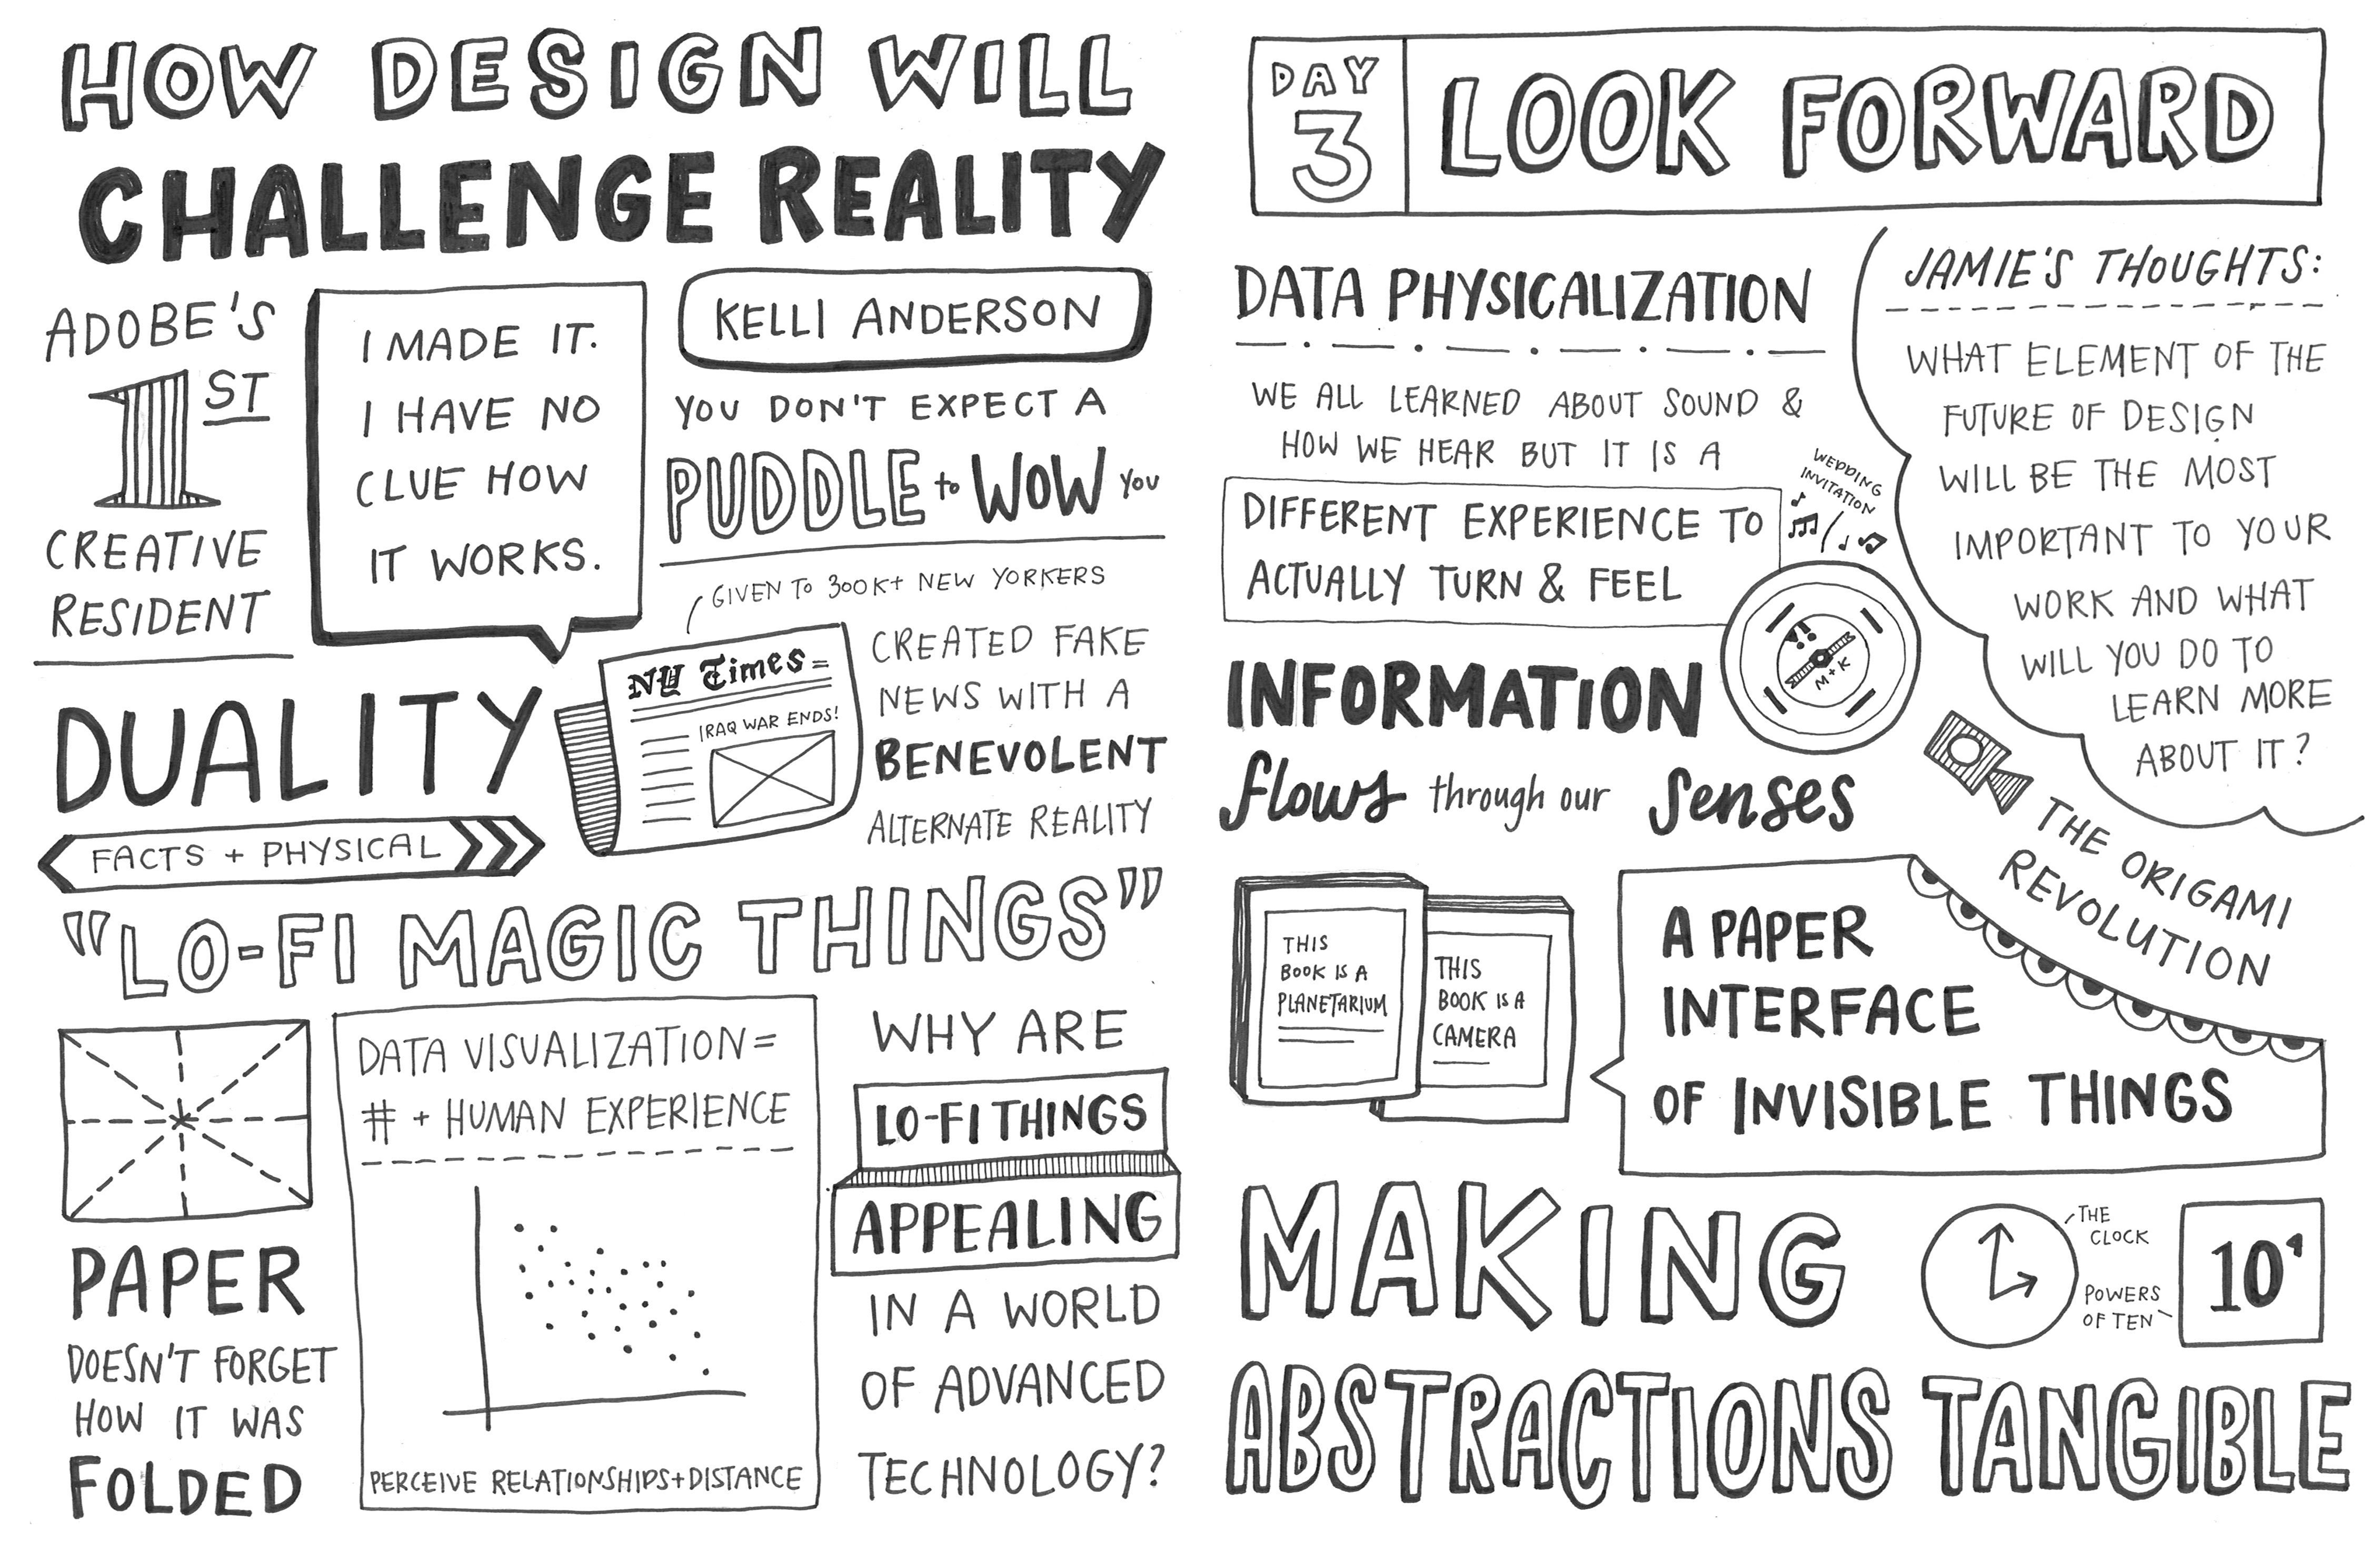 HOW DESIGN WILL
CHALLENGE REALITY
ADOBE'S
1ST
CREATIVE
RESIDENT
I MADE IT.
I HAVE NO
CLUE HOW
IT WORKS.
KELLI ANDERSON
YOU DON'T EXPECT A
PUDDLE to WOW YOU
GIVEN TO 300K+ NEW YORKERS
NY Times
IRAQ WAR ENDS!
CREATED FAKE
NEWS WITH A
BENEVOLENT
ALTERNATE REALITY
DUALITY
FACTS + PHYSICAL
"LO-FI MAGIC THINGS"
PAPER
DOESN'T FORGET
HOW IT WAS
FOLDED
DATA VISUALIZATION =
# + HUMAN EXPERIENCE
PERCEIVE RELATIONSHIPS+DISTANCE
WHY ARE
LO-FI THINGS
APPEALING
IN A WORLD
OF ADVANCED
TECHNOLOGY?
DAY
3
LOOK FORWARD
DATA PHYSICALIZATION
WE ALL LEARNED ABOUT SOUND &
HOW WE HEAR BUT IT IS A
DIFFERENT EXPERIENCE TO
ACTUALLY TURN & FEEL
WEDDING
INVITATION
M+K
INFORMATION
flows through our senses
JAMIE'S THOUGHTS:
WHAT ELEMENT OF THE
FUTURE OF DESIGN
WILL BE THE MOST
IMPORTANT TO YOUR
WORK AND WHAT
WILL YOU DO TO
LEARN MORE
ABOUT IT?
THE ORIGAMI
REVOLUTION
THIS
BOOK IS A
PLANETARIUM
THIS
BOOK IS A
CAMERA
A PAPER
INTERFACE
OF INVISIBLE THINGS
MAKING
THE
CLOCK
POWERS
OF TEN
10⁴
ABSTRACTIONS TANGIBLE